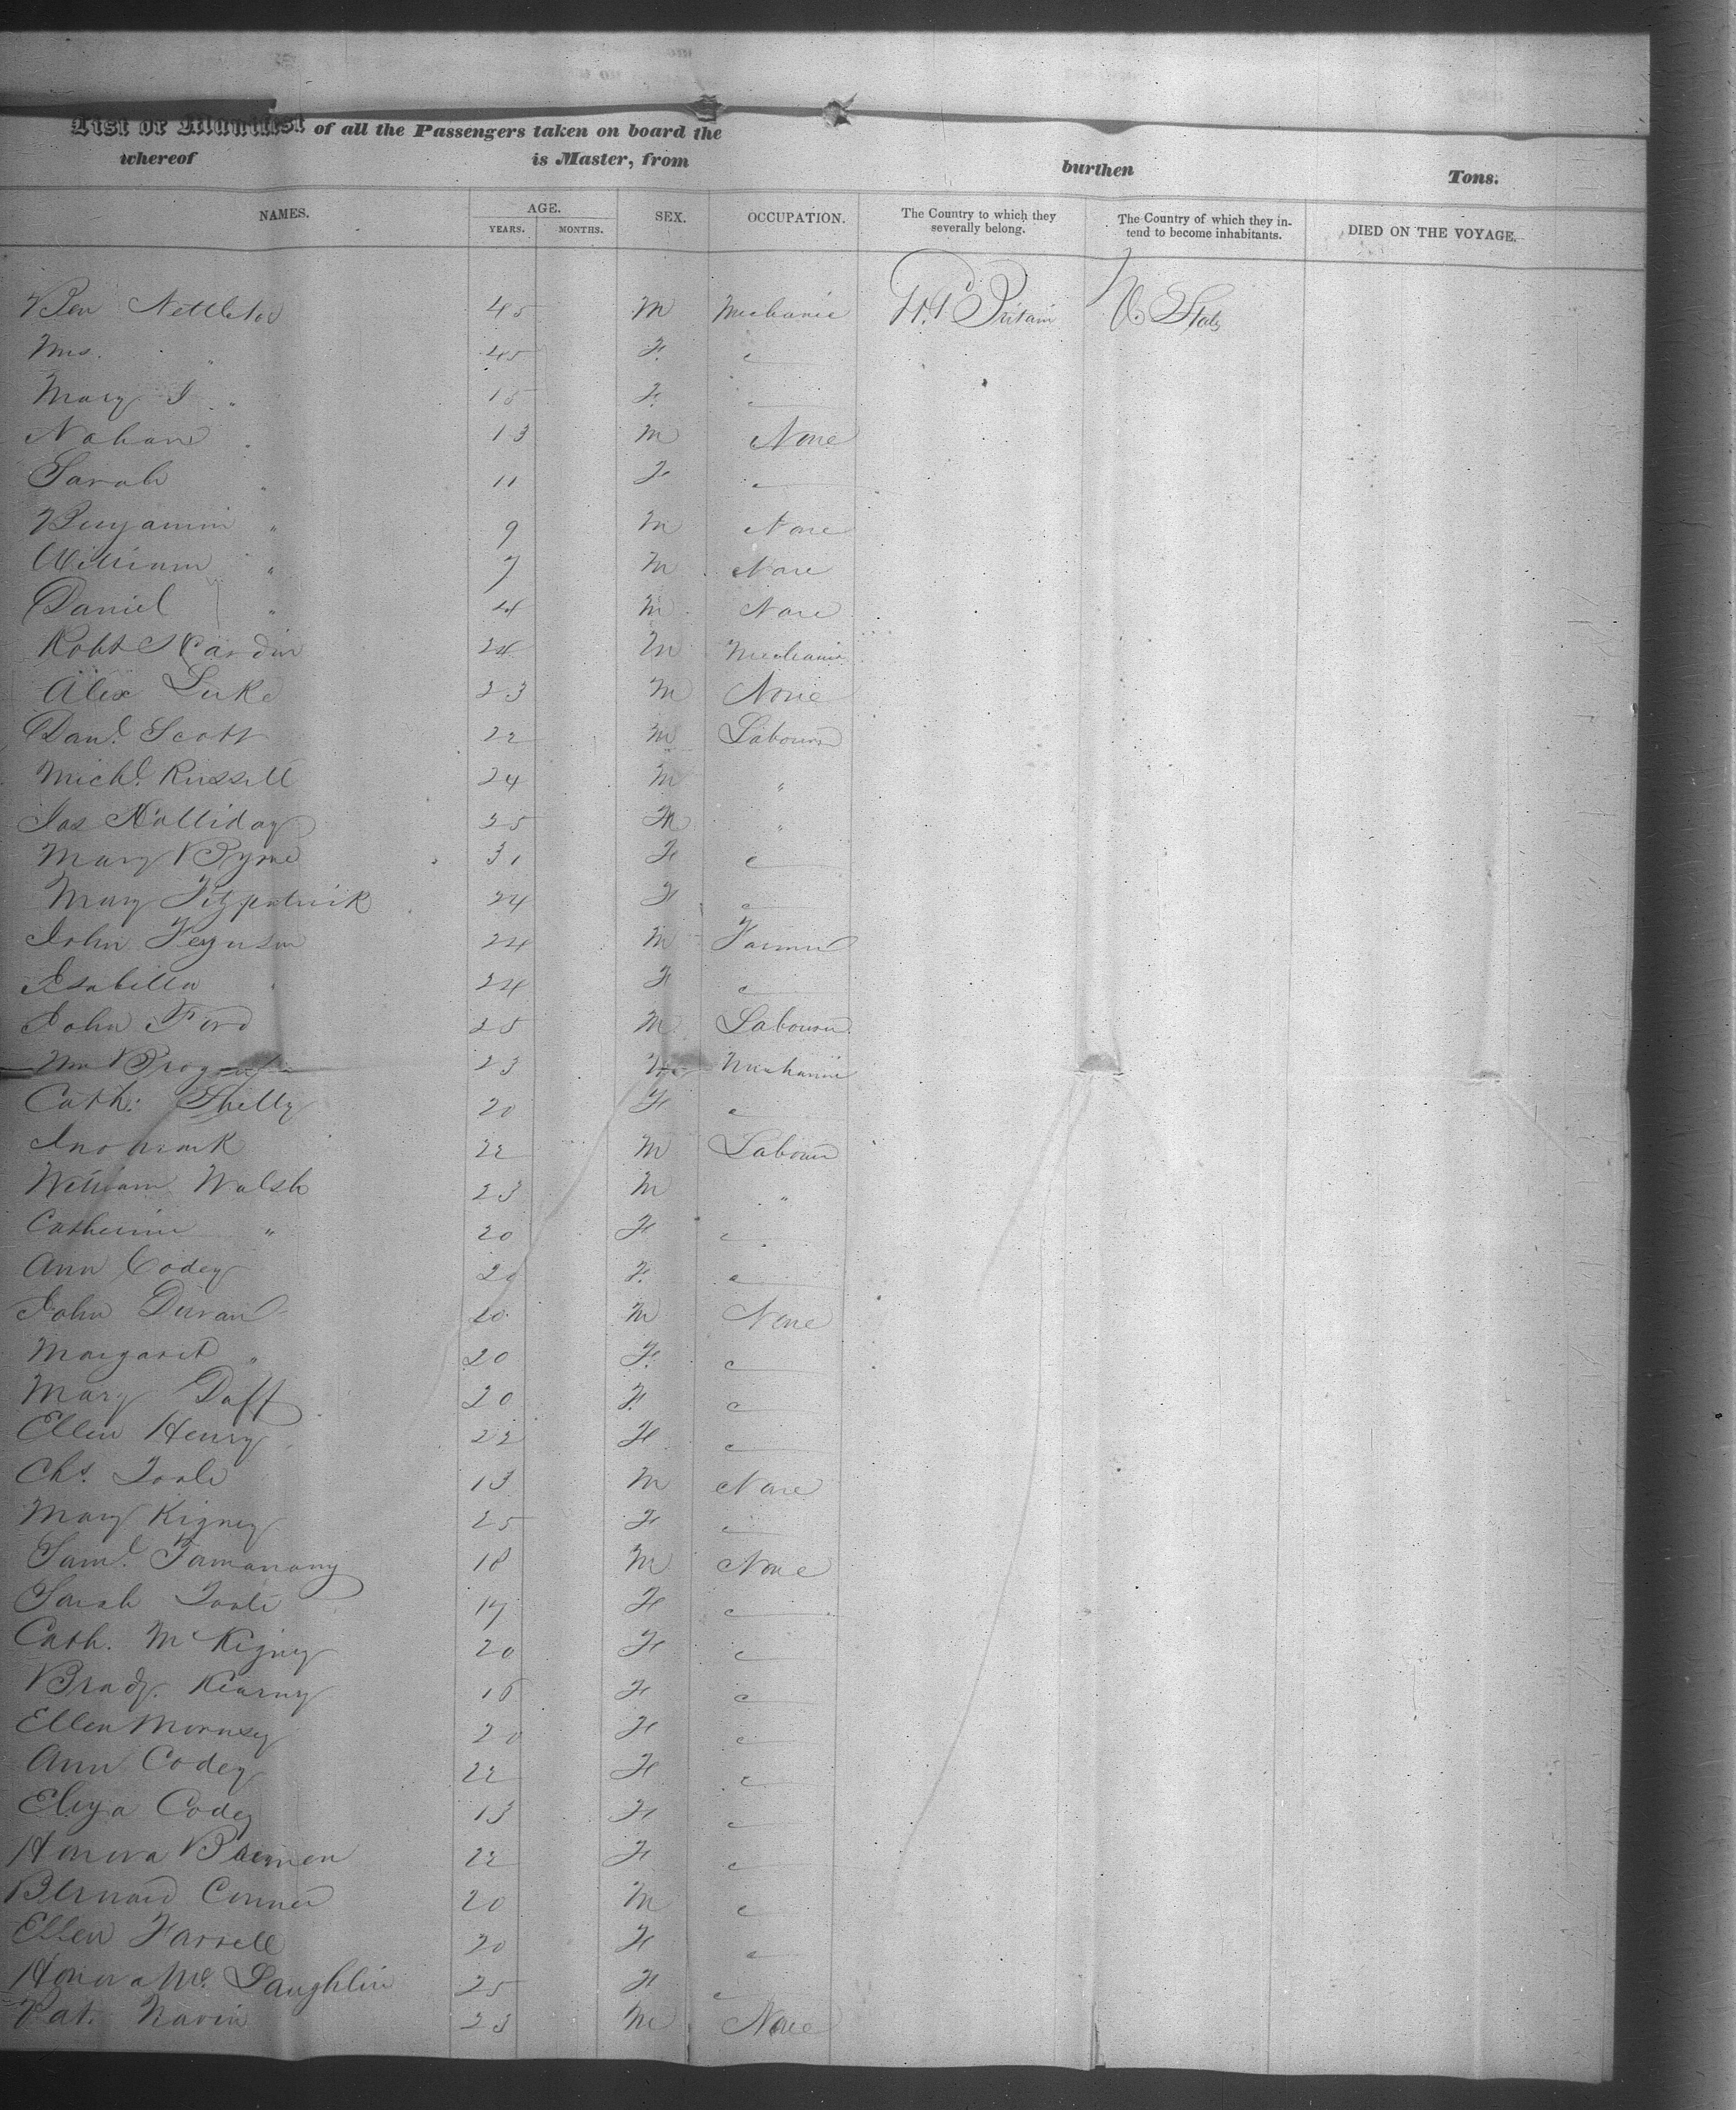 List or Manifest of all the Passengers taken on board the
whereof is Master, from burthen Tons.
NAMES. AGE. SEX. OCCUPATION. The Country to which they severally belong. The Country of which they intend to become inhabitants. DIED ON THE VOYAGE.
YEARS. MONTHS.
Ben Nettleton 45 M Mechanic Gt Britain U. States
Mrs. " 45 F
Mary J " 15 F
Nahan " 13 M None
Sarah " 11 F
Benjamin " 9 M None
William " 7 M None
Daniel " 4 M None
Robt 24 M Mechanic
Alex Luke 23 M None
Danl. Scott 22 M Labourer
Michl. Russell 24 M "
Jas Halliday 25 M "
Mary Byrne 31 F
Mary Fitzpatrick 24 F
John Ferguson 24 M Farmer
Isabella " 24 F
John Ford 25 M Labourer
Wm 23 Mechanic
Cath: Shelly 20 F
22 M Labourer
William Walsh 23 M "
Catherine " 20 F
Ann Codey 20 F
John Duran 20 M None
Margaret " 20 F
Mary Duff 20 F
Ellen Henry 22 F
Chs. Toole 13 M None
Mary Kigney 25 F
Saml. 18 M None
Sarah Toole 17 F
Cath. McKigney 20 F
Bradg. Kearny 16 F
Ellen 20 F
Ann Codey 22 F
Eliza Codey 13 F
Honora 22 F
Bernard Conner 20 M
Ellen Farrell 20 F
Honora Mc Laughlin 25 F
Pat. Navin 23 M None